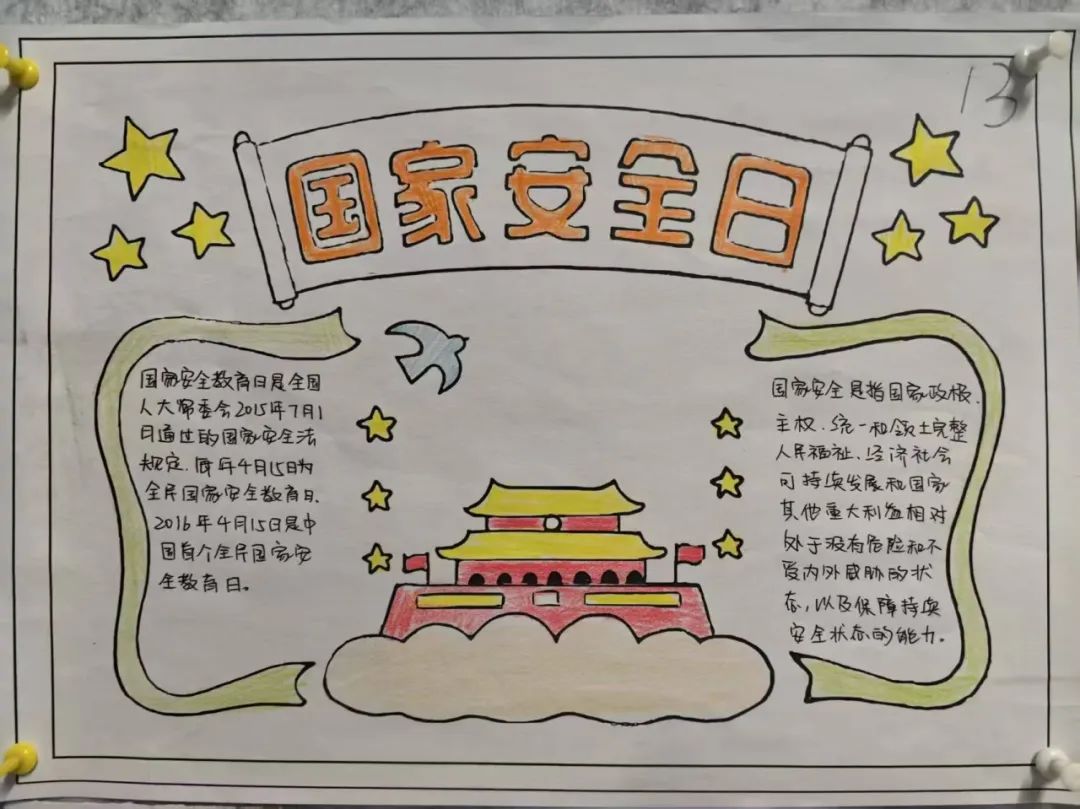 13
国家安全日
国家安全教育日是全国
人大常委会2015年7月1
日通过的国家安全法
规定.每年4月15日为
全民国家安全教育日.
2016年4月15日是中
国首个全民国家安
全教育日。
国家安全是指国家政权.
主权.统一和领土完整
人民福祉.经济社会
可持续发展和国家
其他重大利益相对
处于没有危险和不
受内外威胁的状
态,以及保障持续
安全状态的能力.